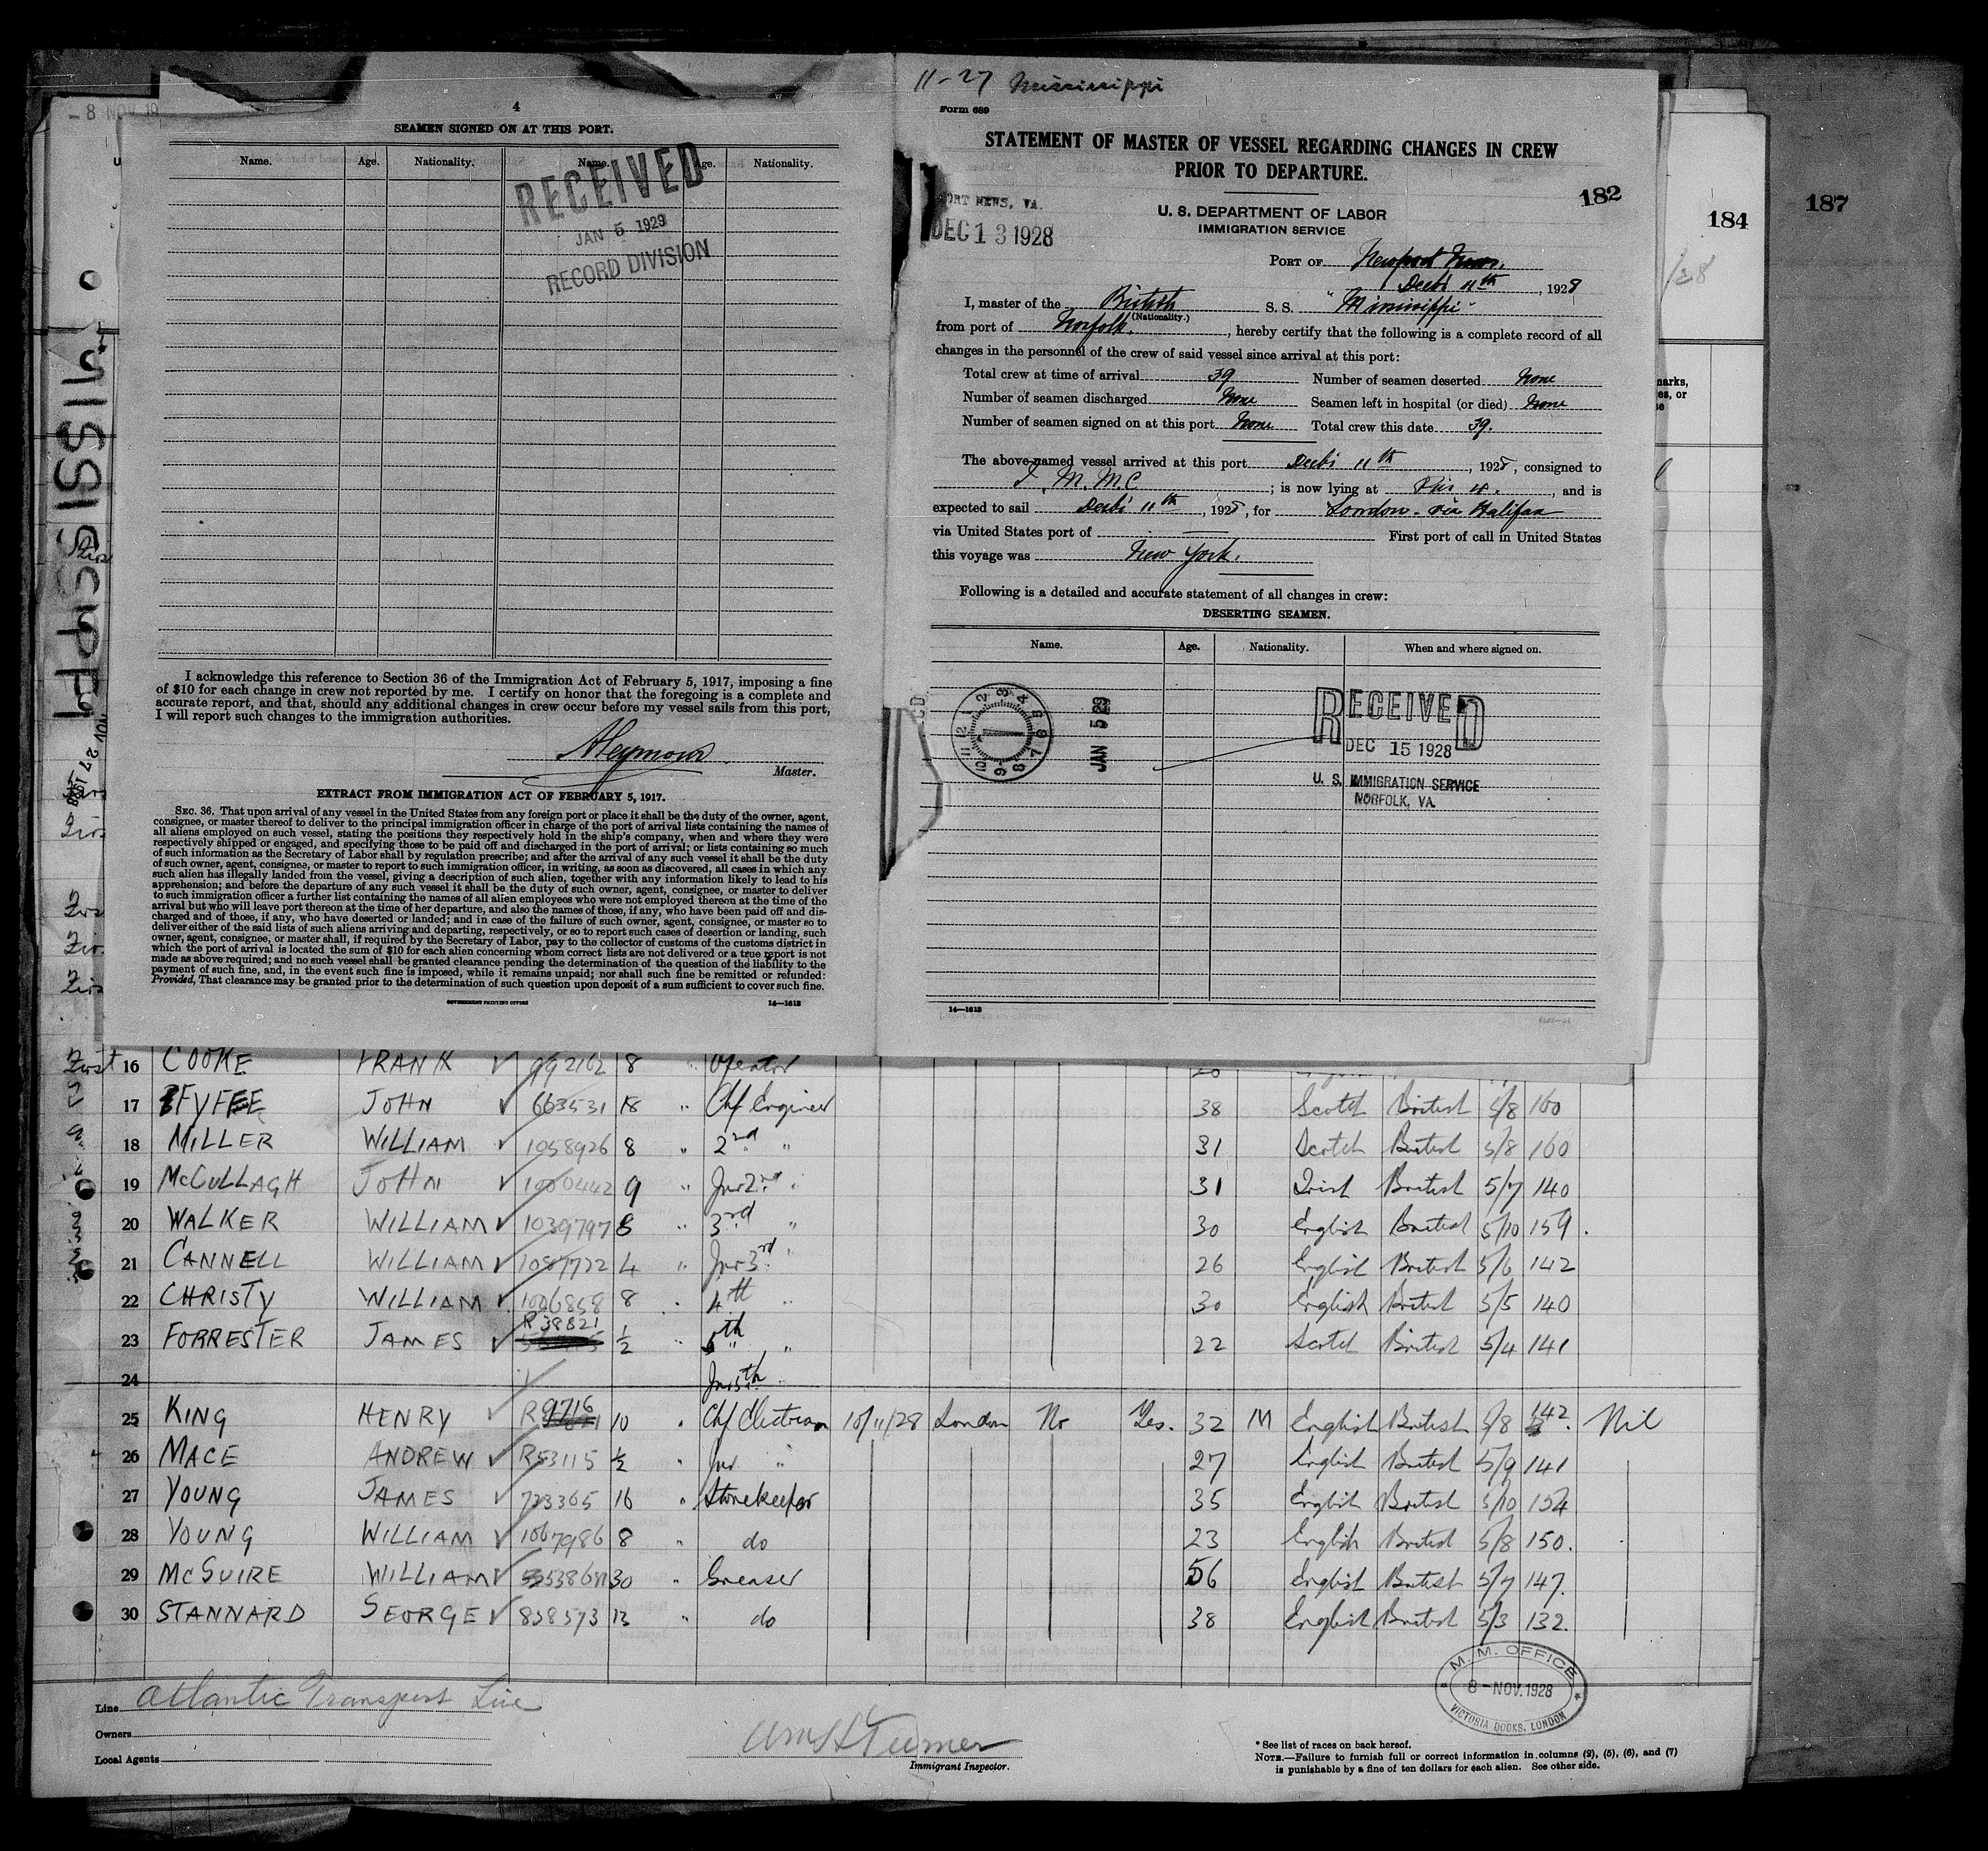 4
SEAMEN SIGNED ON AT THIS PORT.
Name. Age. Nationality. Name. Age. Nationality.
RECEIVED
JAN 5 1929
RECORD DIVISION
I acknowledge this reference to Section 36 of the Immigration Act of February 5, 1917, imposing a fine
of $10 for each change in crew not reported by me. I certify on honor that the foregoing is a complete and
accurate report, and that, should any additional changes in crew occur before my vessel sails from this port,
I will report such changes to the immigration authorities.
Master.
EXTRACT FROM IMMIGRATION ACT OF FEBRUARY 5, 1917.
SEC. 36. That upon arrival of any vessel in the United States from any foreign port or place it shall be the duty of the owner, agent,
consignee, or master thereof to deliver to the principal immigration officer in charge of the port of arrival lists containing the names of
all aliens employed on such vessel, stating the positions they respectively hold in the ship's company, when and where they were
respectively shipped or engaged, and specifying those to be paid off and discharged in the port of arrival; or lists containing so much
of such information as the Secretary of Labor shall by regulation prescribe; and after the arrival of any such vessel it shall be the duty
of such owner, agent, consignee, or master to report to such immigration officer, in writing, as soon as discovered, all cases in which any
such alien has illegally landed from the vessel, giving a description of such alien, together with any information likely to lead to his
apprehension; and before the departure of any such vessel it shall be the duty of such owner, agent, consignee, or master to deliver
to such immigration officer a further list containing the names of all alien employees who were not employed thereon at the time of the
arrival but who will leave port thereon at the time of her departure, and also the names of those, if any, who have been paid off and dis-
charged and of those, if any, who have deserted or landed; and in case of the failure of such owner, agent, consignee, or master so to
deliver either of the said lists of such aliens arriving and departing, respectively, or so to report such cases of desertion or landing, such
owner, agent, consignee, or master shall, if required by the Secretary of Labor, pay to the collector of customs of the customs district in
which the port of arrival is located the sum of $10 for each alien concerning whom correct lists are not delivered or a true report is not
made as above required; and no such vessel shall be granted clearance pending the determination of the question of the liability to the
payment of such fine, and, in the event such fine is imposed, while it remains unpaid; nor shall such fine be remitted or refunded:
Provided, That clearance may be granted prior to the determination of such question upon deposit of a sum sufficient to cover such fine.
GOVERNMENT PRINTING OFFICE 14—1613
11-27 Mississippi
Form 689
STATEMENT OF MASTER OF VESSEL REGARDING CHANGES IN CREW
PRIOR TO DEPARTURE.
182
184
187
NEWS, VA.
DEC 13 1928
U. S. DEPARTMENT OF LABOR
IMMIGRATION SERVICE
PORT OF Newport News.
Decbr 11th, 1928
I, master of the British S. S. "Mississippi"
(Nationality.)
from port of Norfolk., hereby certify that the following is a complete record of all
changes in the personnel of the crew of said vessel since arrival at this port:
Total crew at time of arrival 39 Number of seamen deserted None
Number of seamen discharged None Seamen left in hospital (or died) None
Number of seamen signed on at this port None Total crew this date 39.
The above-named vessel arrived at this port Decbr 11th, 1928, consigned to
I. M. M. C ; is now lying at Pier , and is
expected to sail Decbr 11th, 1928, for London - via Halifax
via United States port of — First port of call in United States
this voyage was New York.
Following is a detailed and accurate statement of all changes in crew:
DESERTING SEAMEN.
Name. Age. Nationality. When and where signed on.
JAN 5 29
RECEIVED
DEC 15 1928
U. S. IMMIGRATION SERVICE
NORFOLK, VA.
14—1613
Mississippi
NOV 27 1928
16 COOKE FRANK 992162 8 " Operator
17 FYFEE JOHN 663531 18 " Chf Engineer 38 Scotch British 5/8 160
18 MILLER WILLIAM 1058926 8 " 2nd " 31 Scotch British 5/8 160
19 McCULLAGH JOHN 1000442 9 " Jnr 2nd " 31 Irish British 5/7 140
20 WALKER WILLIAM 1039797 8 " 3rd " 30 English British 5/10 159.
21 CANNELL WILLIAM 1087722 4 " Jnr 3rd " 26 English British 5/6 142
22 CHRISTY WILLIAM 1006858 8 " 4th " 30 English British 5/5 140
23 FORRESTER JAMES R 38821 ½ " 5th " 22 Scotch British 5/4 141
24 Jnr 5th "
25 KING HENRY R 9716 10 " Chf Electrician 10/11/28 London No Yes. 32 M English British 5/8 142 Nil
26 MACE ANDREW R53115 ½ " Jnr " 27 English British 5/9 141
27 YOUNG JAMES 723365 16 " Storekeeper 35 English British 5/10 154
28 YOUNG WILLIAM 1067986 8 " do 23 English British 5/8 150.
29 McGUIRE WILLIAM 30 " Greaser 56 English British 5/7 147.
30 STANNARD GEORGE 838573 13 " do 38 English British 5/3 132.
Line Atlantic Transport Line
Owners
Local Agents
Wm H Turner
Immigrant Inspector.
M. M. OFFICE
8 - NOV. 1928
VICTORIA DOCKS, LONDON
* See list of races on back hereof.
NOTE.—Failure to furnish full or correct information in columns (2), (5), (6), and (7)
is punishable by a fine of ten dollars for each alien. See other side.